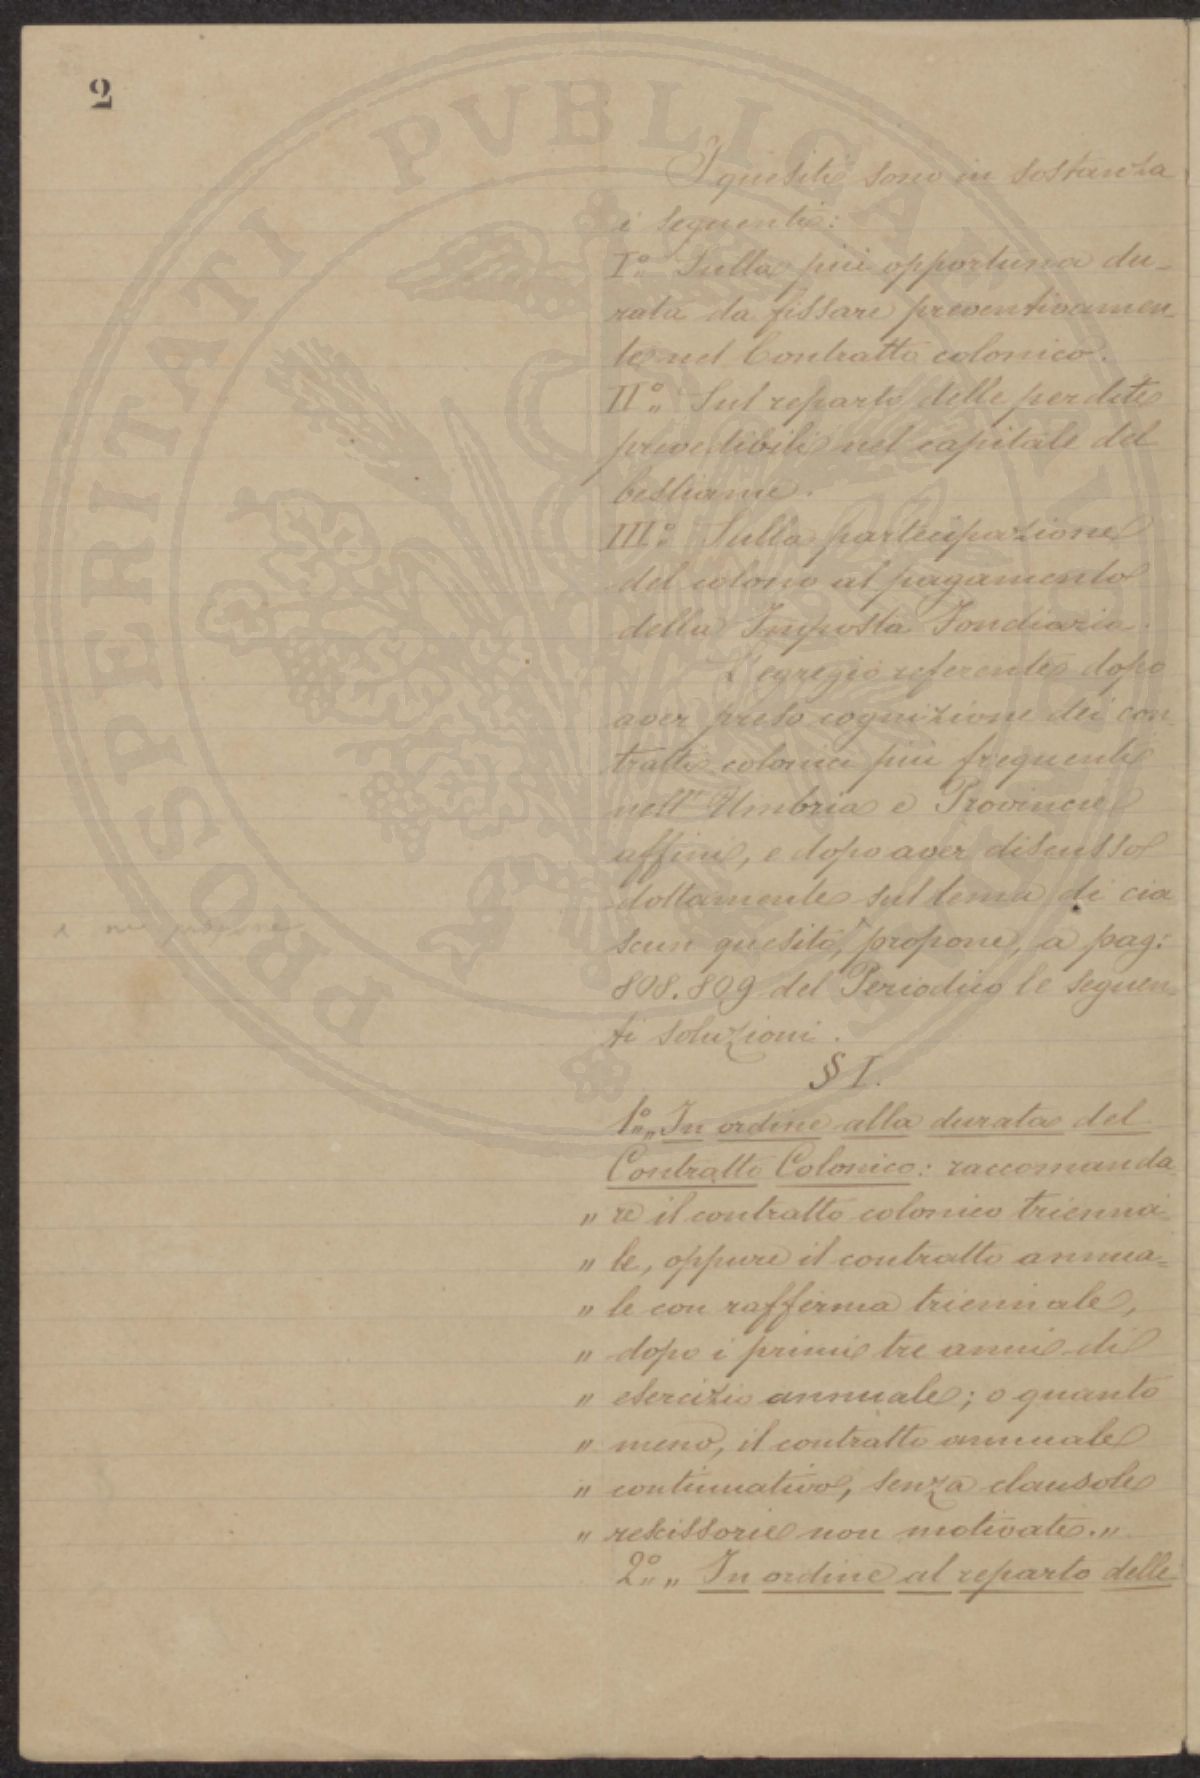 2
PROSPERITATI PVBLICAE
I quesiti sono in sostanza
i seguenti:
I.° Sulla più opportuna du-
rata da fissare preventivamen-
te nel Contratto colonico.
II.° Sul reparto delle perdite
prevedibili nel capitale del
bestiame.
III.° Sulla partecipazione
del colono al pagamento
della Imposta Fondiaria.
L'egregio referente dopo
aver preso cognizione dei con-
tratti colonici più frequenti
nell'Umbria e Provincie
affini, e dopo aver discusso
dottamente sul tema di cia
scun quesito, propone, a pag:
808.809 del Periodico le seguen-
ti soluzioni.
§ I.
1.° „ In ordine alla durata del
Contratto Colonico: raccomanda
„ re il contratto colonico trienna-
„ le, oppure il contratto annua-
„ le con rafferma triennale,
„ dopo i primi tre anni di
„ esercizio annuale; o quanto
„ meno, il contratto annuale
„ continuativo, senza clausole
„ rescissorie non motivate.„
2.° „ In ordine al reparto delle